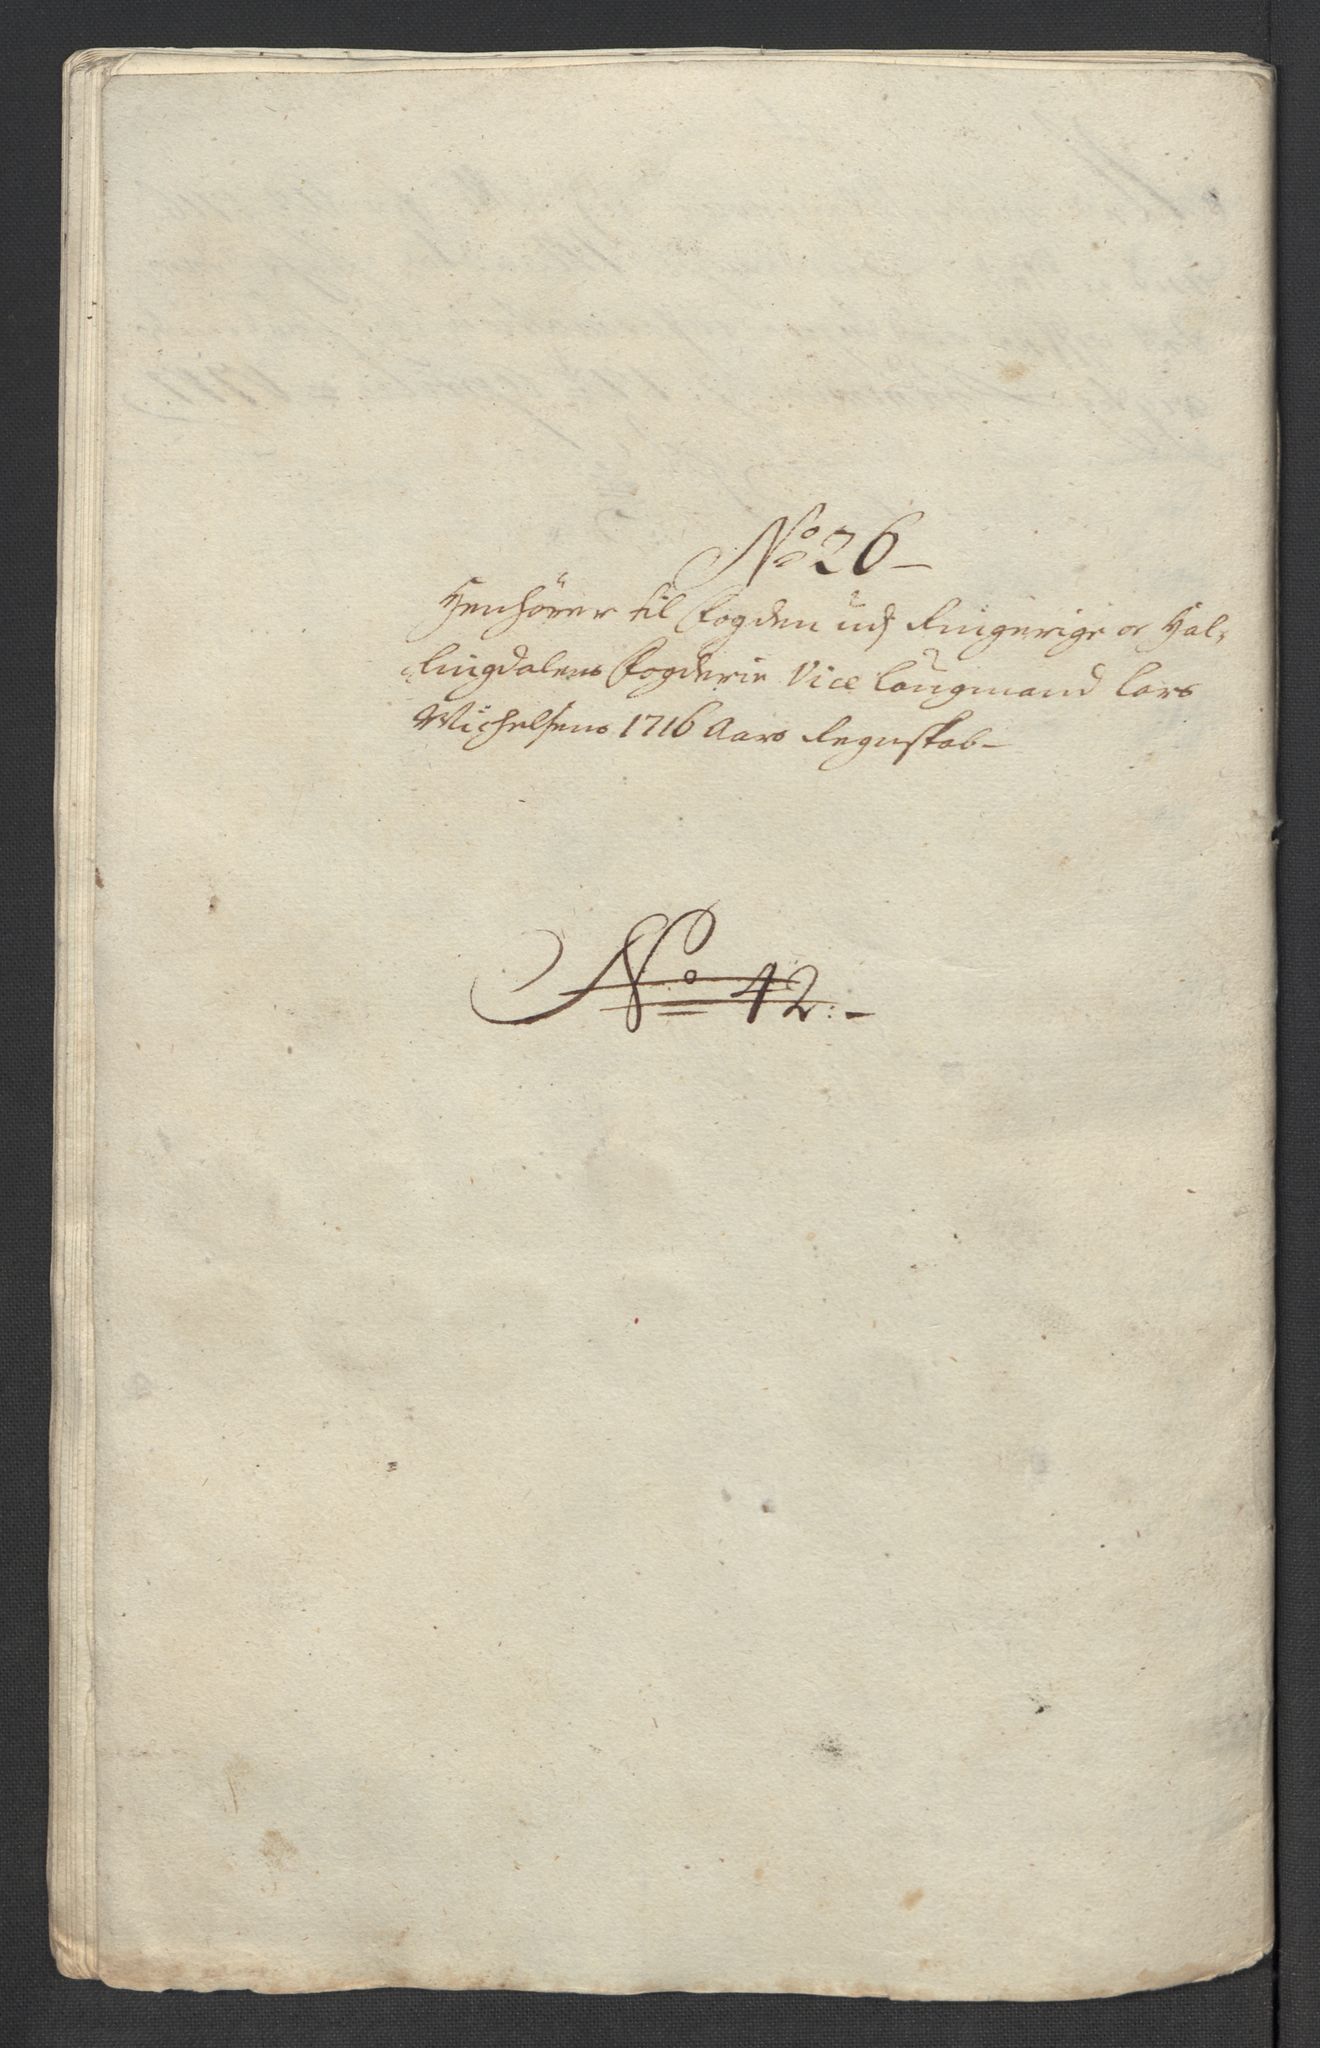 No 26
Henhörer til Fogden udj Ringerige oc Hal-
lingdalens Fogderie Vice Laugmand Lars
Michelsens 1716 Aars Regnskab
No 42:-